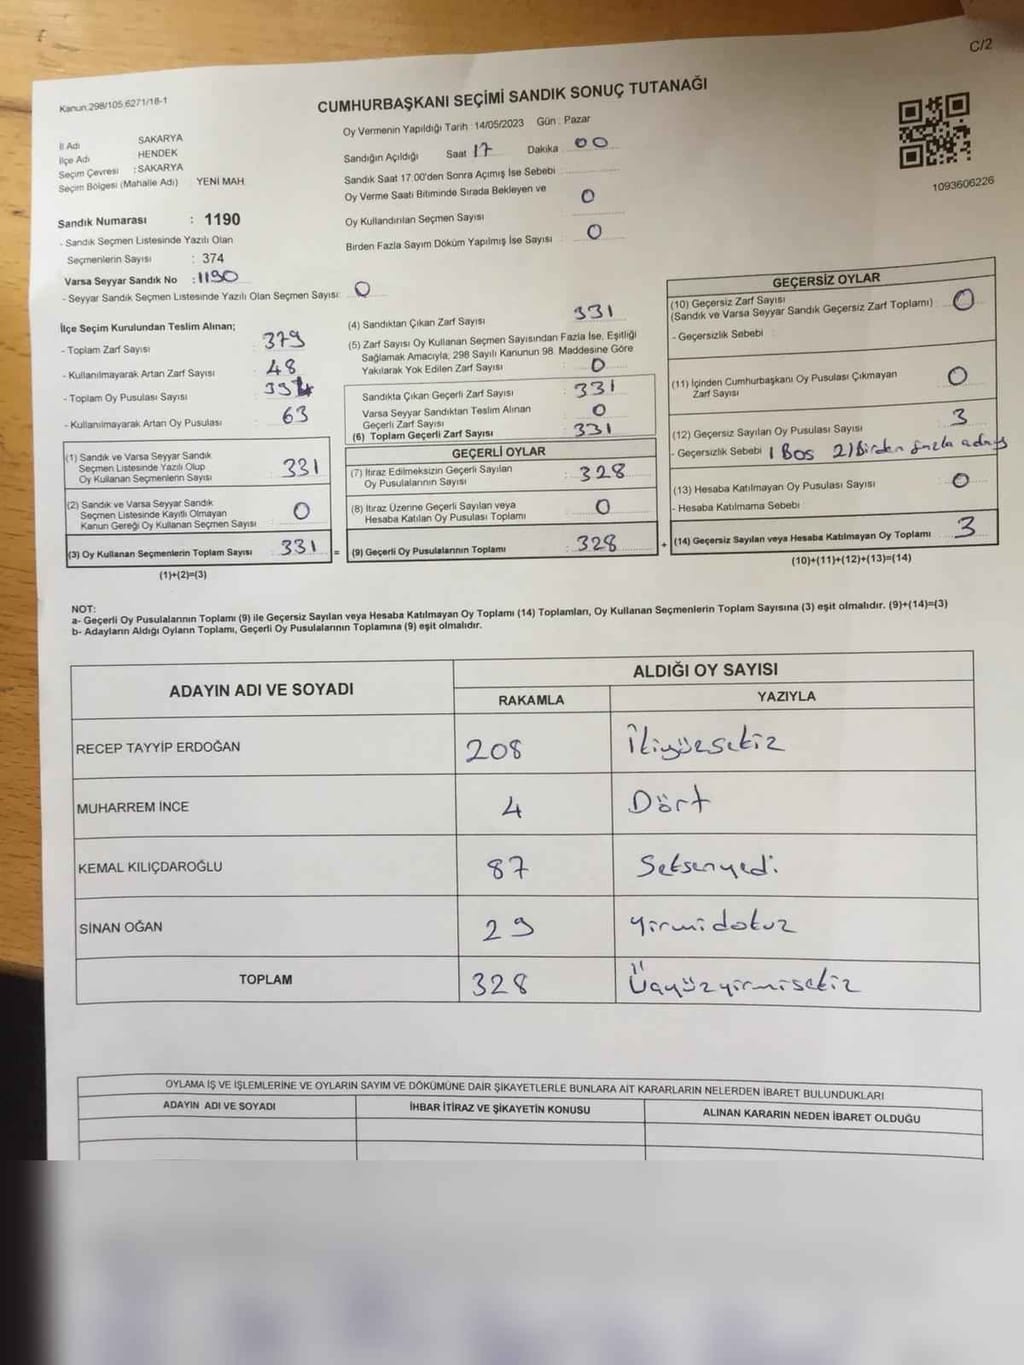 C/2
Kanun:298/105,6271/18-1
CUMHURBAŞKANI SEÇİMİ SANDIK SONUÇ TUTANAĞI
İl Adı SAKARYA
İlçe Adı HENDEK
Seçim Çevresi : SAKARYA
Seçim Bölgesi (Mahalle Adı) YENİ MAH
Sandık Numarası : 1190
- Sandık Seçmen Listesinde Yazılı Olan
Seçmenlerin Sayısı : 374
Varsa Seyyar Sandık No : 1190
- Seyyar Sandık Seçmen Listesinde Yazılı Olan Seçmen Sayısı: 0
Oy Vermenin Yapıldığı Tarih : 14/05/2023 Gün : Pazar
Sandığın Açıldığı Saat 17 Dakika 00
Sandık Saat 17.00'den Sonra Açımış İse Sebebi
Oy Verme Saati Bitiminde Sırada Bekleyen ve
Oy Kullandırılan Seçmen Sayısı 0
Birden Fazla Sayım Döküm Yapılmış İse Sayısı 0
1093606226
İlçe Seçim Kurulundan Teslim Alınan;
- Toplam Zarf Sayısı 379
- Kullanılmayarak Artan Zarf Sayısı 48
- Toplam Oy Pusulası Sayısı
- Kullanılmayarak Artan Oy Pusulası 63
(1) Sandık ve Varsa Seyyar Sandık
Seçmen Listesinde Yazılı Olup
Oy Kullanan Seçmenlerin Sayısı 331
(2) Sandık ve Varsa Seyyar Sandık
Seçmen Listesinde Kayıtlı Olmayan
Kanun Gereği Oy Kullanan Seçmen Sayısı 0
(3) Oy Kullanan Seçmenlerin Toplam Sayısı 331 =
(1)+(2)=(3)
(4) Sandıktan Çıkan Zarf Sayısı 331
(5) Zarf Sayısı Oy Kullanan Seçmen Sayısından Fazla İse, Eşitliği
Sağlamak Amacıyla, 298 Sayılı Kanunun 98. Maddesine Göre
Yakılarak Yok Edilen Zarf Sayısı 0
Sandıkta Çıkan Geçerli Zarf Sayısı : 331
Varsa Seyyar Sandıktan Teslim Alınan
Geçerli Zarf Sayısı 0
(6) Toplam Geçerli Zarf Sayısı : 331
GEÇERLİ OYLAR
(7) İtiraz Edilmeksizin Geçerli Sayılan
Oy Pusulalarının Sayısı : 328
(8) İtiraz Üzerine Geçerli Sayılan veya
Hesaba Katılan Oy Pusulası Toplamı : 0
(9) Geçerli Oy Pusulalarının Toplamı : 328 +
GEÇERSİZ OYLAR
(10) Geçersiz Zarf Sayısı
(Sandık ve Varsa Seyyar Sandık Geçersiz Zarf Toplamı) : 0
- Geçersizlik Sebebi :
(11) İçinden Cumhurbaşkanı Oy Pusulası Çıkmayan
Zarf Sayısı 0
(12) Geçersiz Sayılan Oy Pusulası Sayısı 3
- Geçersizlik Sebebi 1 Boş 2) Birden fazla aday
(13) Hesaba Katılmayan Oy Pusulası Sayısı 0
- Hesaba Katılmama Sebebi
(14) Geçersiz Sayılan veya Hesaba Katılmayan Oy Toplamı 3
(10)+(11)+(12)+(13)=(14)
NOT:
a- Geçerli Oy Pusulalarının Toplamı (9) ile Geçersiz Sayılan veya Hesaba Katılmayan Oy Toplamı (14) Toplamları, Oy Kullanan Seçmenlerin Toplam Sayısına (3) eşit olmalıdır. (9)+(14)=(3)
b- Adayların Aldığı Oyların Toplamı, Geçerli Oy Pusulalarının Toplamına (9) eşit olmalıdır.
ADAYIN ADI VE SOYADI ALDIĞI OY SAYISI
RAKAMLA YAZIYLA
RECEP TAYYİP ERDOĞAN 208 İkiyüzsekiz
MUHARREM İNCE 4 Dört
KEMAL KILIÇDAROĞLU 87 Seksenyedi
SİNAN OĞAN 29 yirmidokuz
TOPLAM 328 Üçyüzyirmisekiz
OYLAMA İŞ VE İŞLEMLERİNE VE OYLARIN SAYIM VE DÖKÜMÜNE DAİR ŞİKAYETLERLE BUNLARA AİT KARARLARIN NELERDEN İBARET BULUNDUKLARI
ADAYIN ADI VE SOYADI İHBAR İTİRAZ VE ŞİKAYETİN KONUSU ALINAN KARARIN NEDEN İBARET OLDUĞU